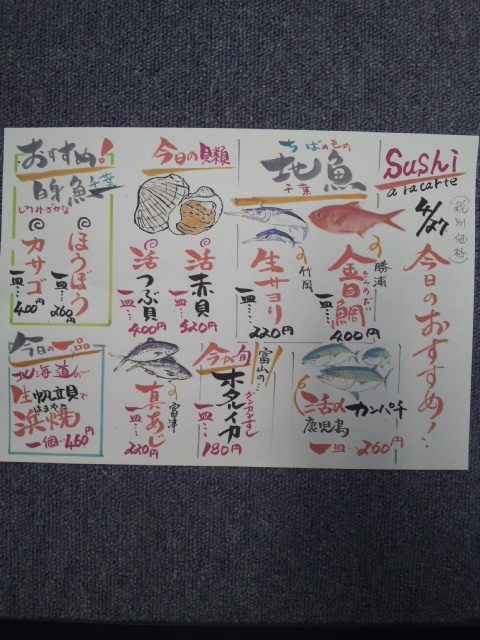 Sushi
a racarte
4/27
税別価格
今日のおすすめ!‥
ちばのもの
地魚
千葉
勝浦の
きんめだい
金目鯛
一皿‥ 400円
竹岡の
生サヨリ
一皿‥ 220円
今日の貝類
活赤貝
一皿‥ 520円
活つぶ貝
一皿‥ 400円
おすすめ!品
白身魚
しろみざかな
千葉
ほうぼう
一皿‥ 260円
カサゴ
一皿‥ 400円
活〆カンパチ
鹿児島
一皿‥ 260円
今が旬
富山の‥
ホタルイカ
グンカンすし
一皿‥ 180円
富津の
真あじ
一皿‥ 220円
今日の一品
北海道の
生帆立貝で
はまやき
浜焼
一個‥460円